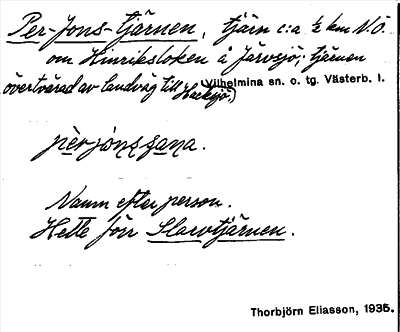 Per-Jons-tjärnen, tjärn c:a ½ km N.Ö.
om Hinriksloken å Järvsjö; tjärnen
övertvärad av landväg till Hacksjö.)
Vilhelmina sn. o. tg. Västerb. l.
Namn efter person.
Hette förr Slarvtjärnen.
Thorbjörn Eliasson, 1935.